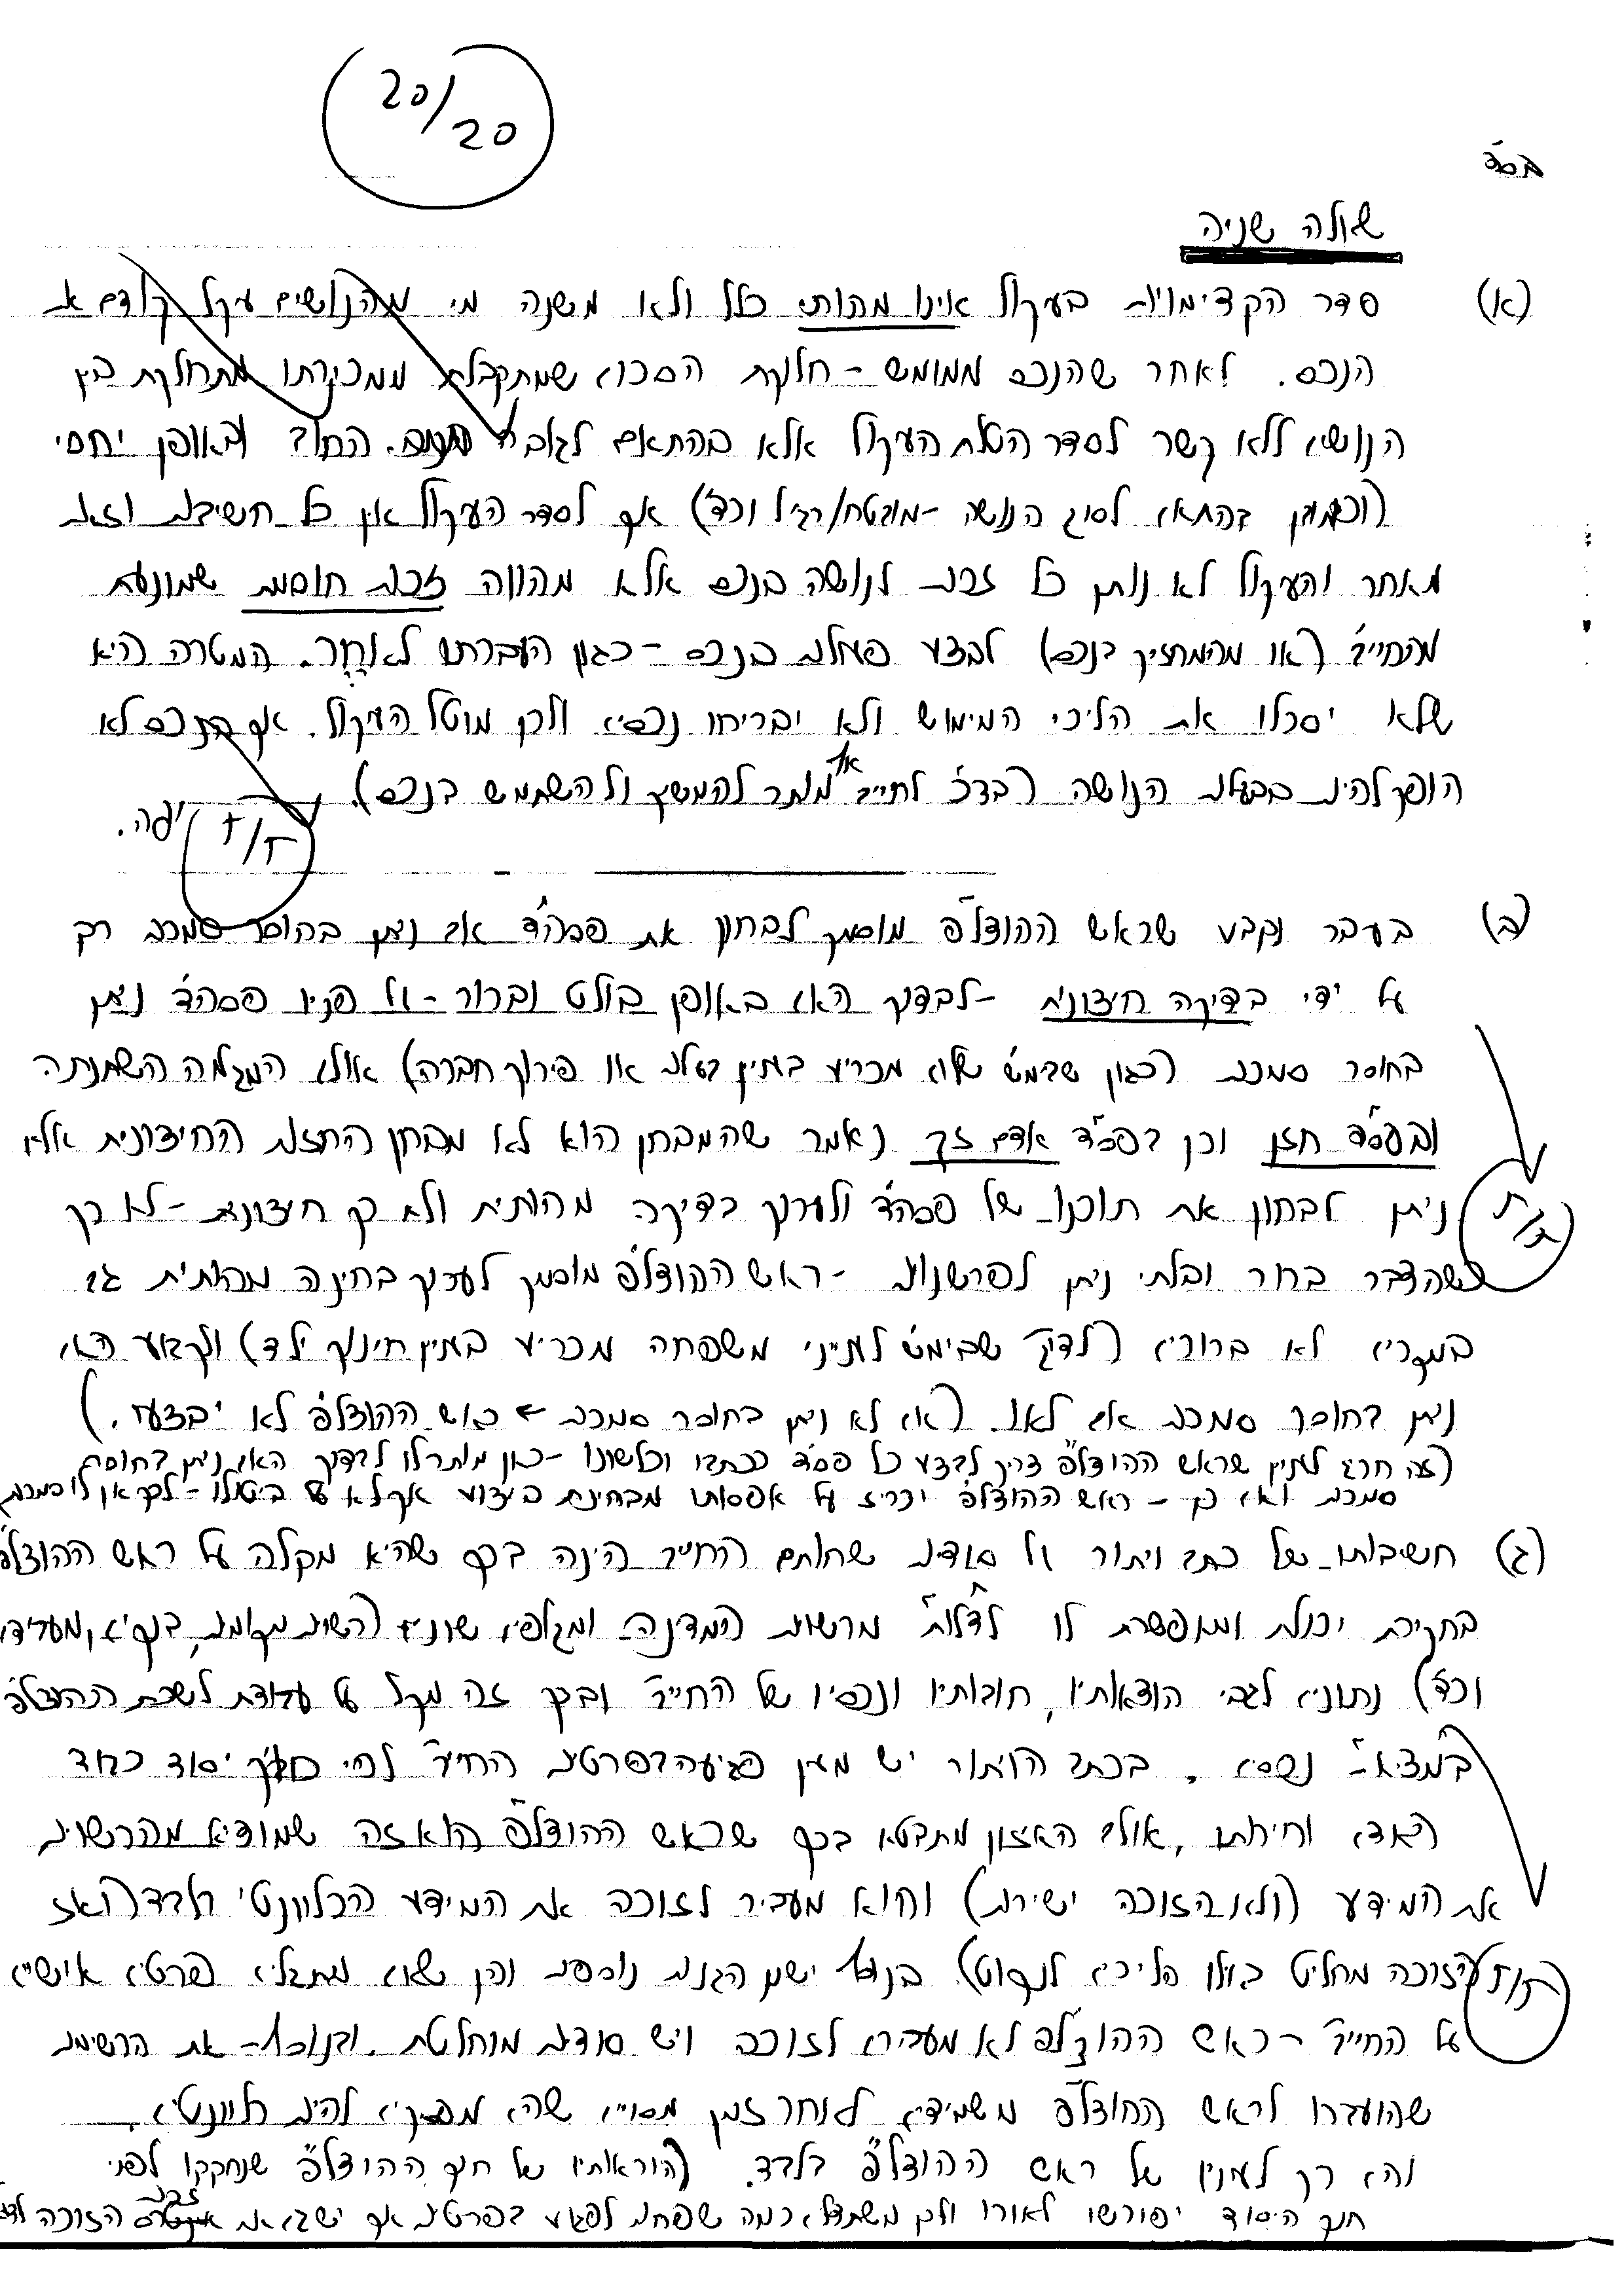 20/20
בס"ד
שאלה שניה
(א) סדר הקדימויות בעיקול אינו מהותי כלל ולא משנה מי מהנושים עיקל קודם את
הנכס. לאחר שהנכס ממומש - חלוקת הסכום שמתקבל ממכירתו מתחלקת בין
הנושים ללא קשר לסדר הטלת העיקול אלא בהתאם לגובה החוב ובאופן יחסי
(וכמובן בהתאם לסוג הנושה - מובטח/רגיל וכד') אך לסדר העיקול אין כל חשיבות וזאת
מאחר והעיקול לא נותן כל זכות לנושה בנכס אלא מהווה זכות חוסמת שמונעת
מהחייב (או מהמחזיק בנכס) לבצע פעולות בנכס - כגון העברתו לאחר. המטרה היא
שלא יסכלו את הליכי המימוש ולא יבריחו נכסים ולכן מוטל העיקול. אך הנכס לא
הופך להיות בבעלות הנושה (בד"כ לחייב אף מותר להמשיך ולהשתמש בנכס).
יפה.
(ב) בעבר נקבע שראש ההוצל"פ מוסמך לבחון את פסה"ד אם ניתן בחוסר סמכות רק
על ידי בדיקה חיצונית - לבדוק האם באופן בולט וברור - על פניו פסה"ד ניתן
בחוסר סמכות (כגון שבימ"ש שלום מכריע בעניין בטלות או פירוק חברה) אולם המגמה השתנתה
ובפס"ד חזן וכן בפס"ד אדם זך נאמר שהמבחן הוא לא מבחן החזות החיצונית אלא
ניתן לבחון את תוכנו של פסה"ד ולערוך בדיקה מהותית ולא רק חיצונית - לא רק
כשהדבר ברור ובלתי ניתן לפרשנות - ראש ההוצל"פ מוסמך לערוך בחינה מהותית גם
במקרים לא ברורים (לדוג' שבימ"ש לענייני משפחה מכריע בעניין חינוך ילד) ולקבוע האם
ניתן בחוסר סמכות אם לאו. (אם לא ניתן בחוסר סמכות ← ראש ההוצל"פ לא יבצע.)
(זה חריג לעניין שראש ההוצל"פ צריך לבצע כל פס"ד ככתבו וכלשונו - כאן מותר לו לבדוק האם ניתן בחוסר
סמכות ואם כן - ראש ההוצל"פ יכריז על אפסותו מבחינת ביצוע אך לא על ביטולו - לכך אין לו סמכות)
(ג) חשיבותו של כתב ויתור על סודיות שחותם החייב הינה בכך שהיא מקלה על ראש ההוצל"פ
בחקירת יכולת ומאפשרת לו לדלות מרשויות המדינה ומגופים שונים (רשויות מקומיות, בנקים, מעבידים
וכד') נתונים לגבי הוצאותיו, חובותיו ונכסיו של החייב ובכך זה מקל על עבודת לשכת ההוצל"פ
במציאת נכסים. בכתב הויתור יש מעין פגיעה בפרטיות החייב לפי חוק יסוד כבוד
האדם וחירותו, אולם האיזון מתבטא בכך שראש ההוצל"פ הוא זה שמוציא מהרשויות
את המידע (ולא הזוכה ישירות) והוא מעביר לזוכה את המידע הרלוונטי בלבד (ואז
הזוכה מחליט באלו הליכים לנקוט). בנוסף ישנן הגנות נוספות והן שאם מתגלים פרטים אישיים
על החייב - ראש ההוצל"פ לא מעבירם לזוכה ויש סודיות מוחלטת. ובנוסף - את הרשימות
שהועברו לראש ההוצל"פ משמידים לאחר זמן מסויים שהם מפסיקים להיות רלוונטים.
והם רק לעניין של ראש ההוצל"פ בלבד. (הוראותיו של חוק ההוצל"פ שנחקקו לפני
חוק היסוד יפורשו לאורו ולכן משתדלים כמה שפחות לפגוע בפרטיות אך יש גם את זכות הזוכה